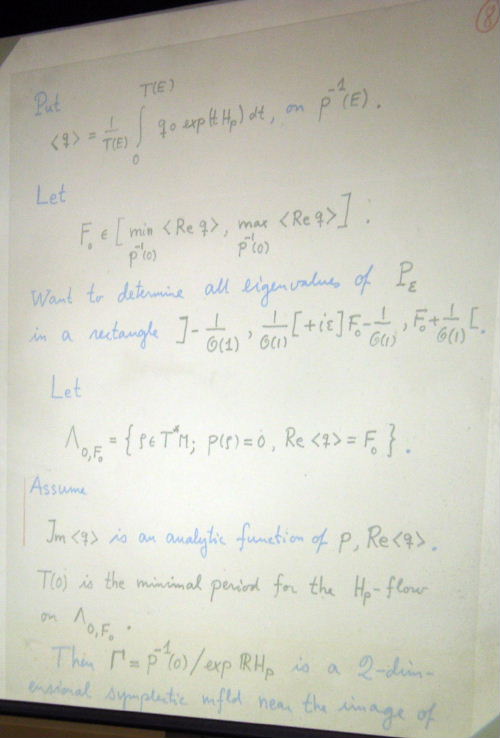 8
Put
⟨q⟩ = 1/T(E) ∫₀^T(E) q∘exp(tHₚ)dt, on p⁻¹(E).
Let
F₀ ∈ [ min_{p⁻¹(0)} ⟨Re q⟩, max_{p⁻¹(0)} ⟨Re q⟩ ].
Want to determine all eigenvalues of P_ε
in a rectangle ]-1/O(1), 1/O(1)[ +iε ]F₀-1/O(1), F₀+1/O(1)[.
Let
Λ_{0,F₀} = { ρ∈T*M; p(ρ)=0, Re⟨q⟩=F₀ }.
Assume
Im⟨q⟩ is an analytic function of p, Re⟨q⟩.
T(0) is the minimal period for the Hₚ-flow
on Λ_{0,F₀}.
Then Γ = p⁻¹(0)/exp ℝHₚ is a 2-dim-
ensional symplectic mfld near the image of